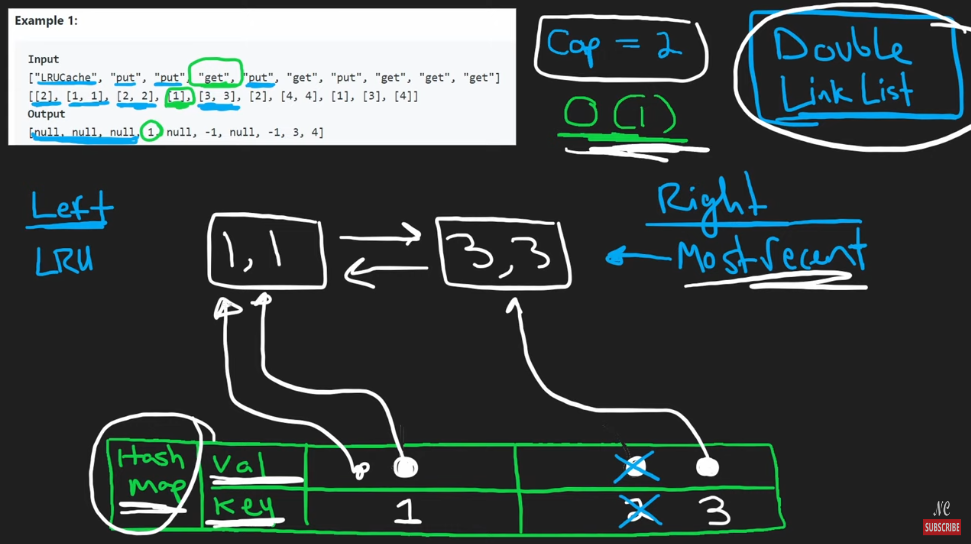 Example 1:
Input
["LRUCache", "put", "put", "get", "put", "get", "put", "get", "get", "get"]
[[2], [1, 1], [2, 2], [1], [3, 3], [2], [4, 4], [1], [3], [4]]
Output
[null, null, null, 1, null, -1, null, -1, 3, 4]
Cap = 2
O(1)
Double
Link List
Left
LRU
1,1
3,3
Right
Most recent
Hash
Map
Val
Key
1
2
3
NC
SUBSCRIBE